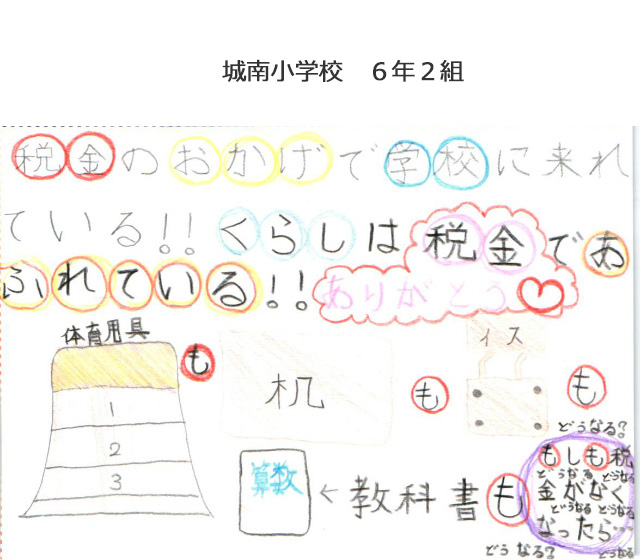 城南小学校　６年２組
税金のおかげで学校に来れ
ている!!くらしは税金であ
ふれている!!ありがとう
体育用具
も
机
も
イス
も
1
2
3
算数
←教科書も
どうなる?
もしも税
どうなる どうなる
金がなく
どうなる どうなる
なったら…
どうなる?
どうなる